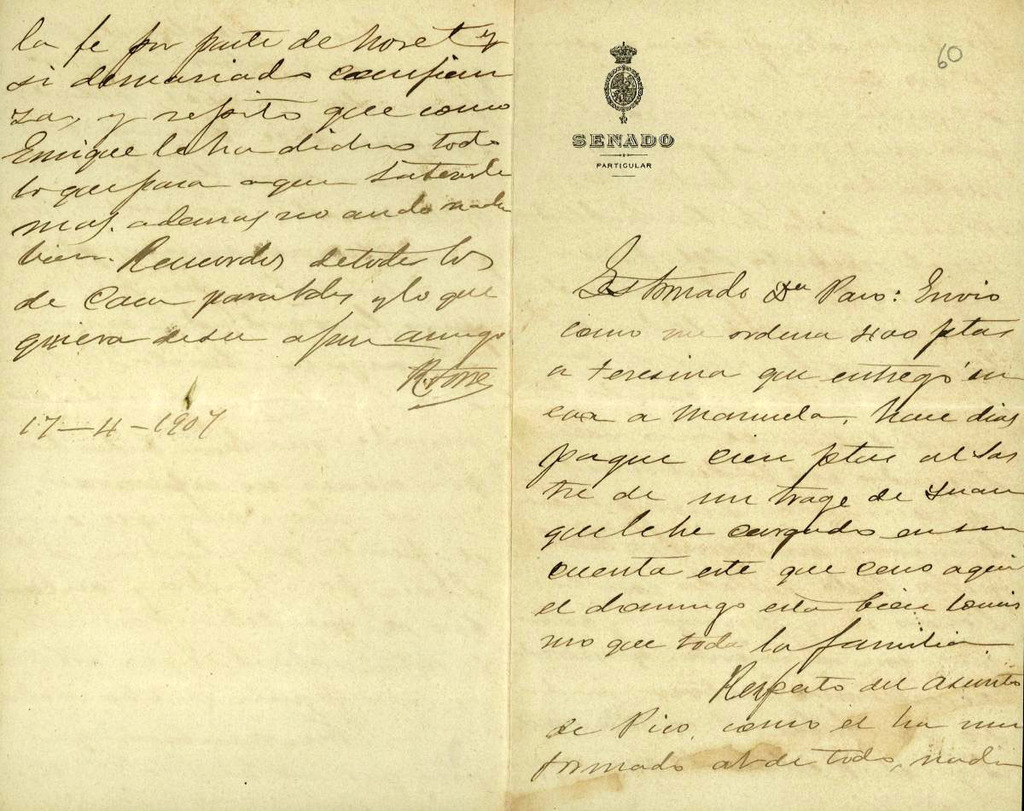 60
SENADO
PARTICULAR
Estimado Dn Paco: Envio
como me ordena 400 ptas
a teresina que entregó en
casa a Manuela, hace dias
pague cien ptas al sas
tre de un trage de Juan
que le he cargado en su
cuenta este que ceno aqui
el domingo esta bien lomis
mo que toda la familia.
Respecto del asunto
de Pico, como el ha in
formado al de todo, nada
la fe por parte de Moret y
si demasiada confian
za, y repito que como
Enrique le ha dicho todo
lo que pasa a quien
mas. ademas no ando nada
bien. Recuerdos de todos los
de Casa para Vdes y lo que
quiera de su afmo amigo
17-4-1907